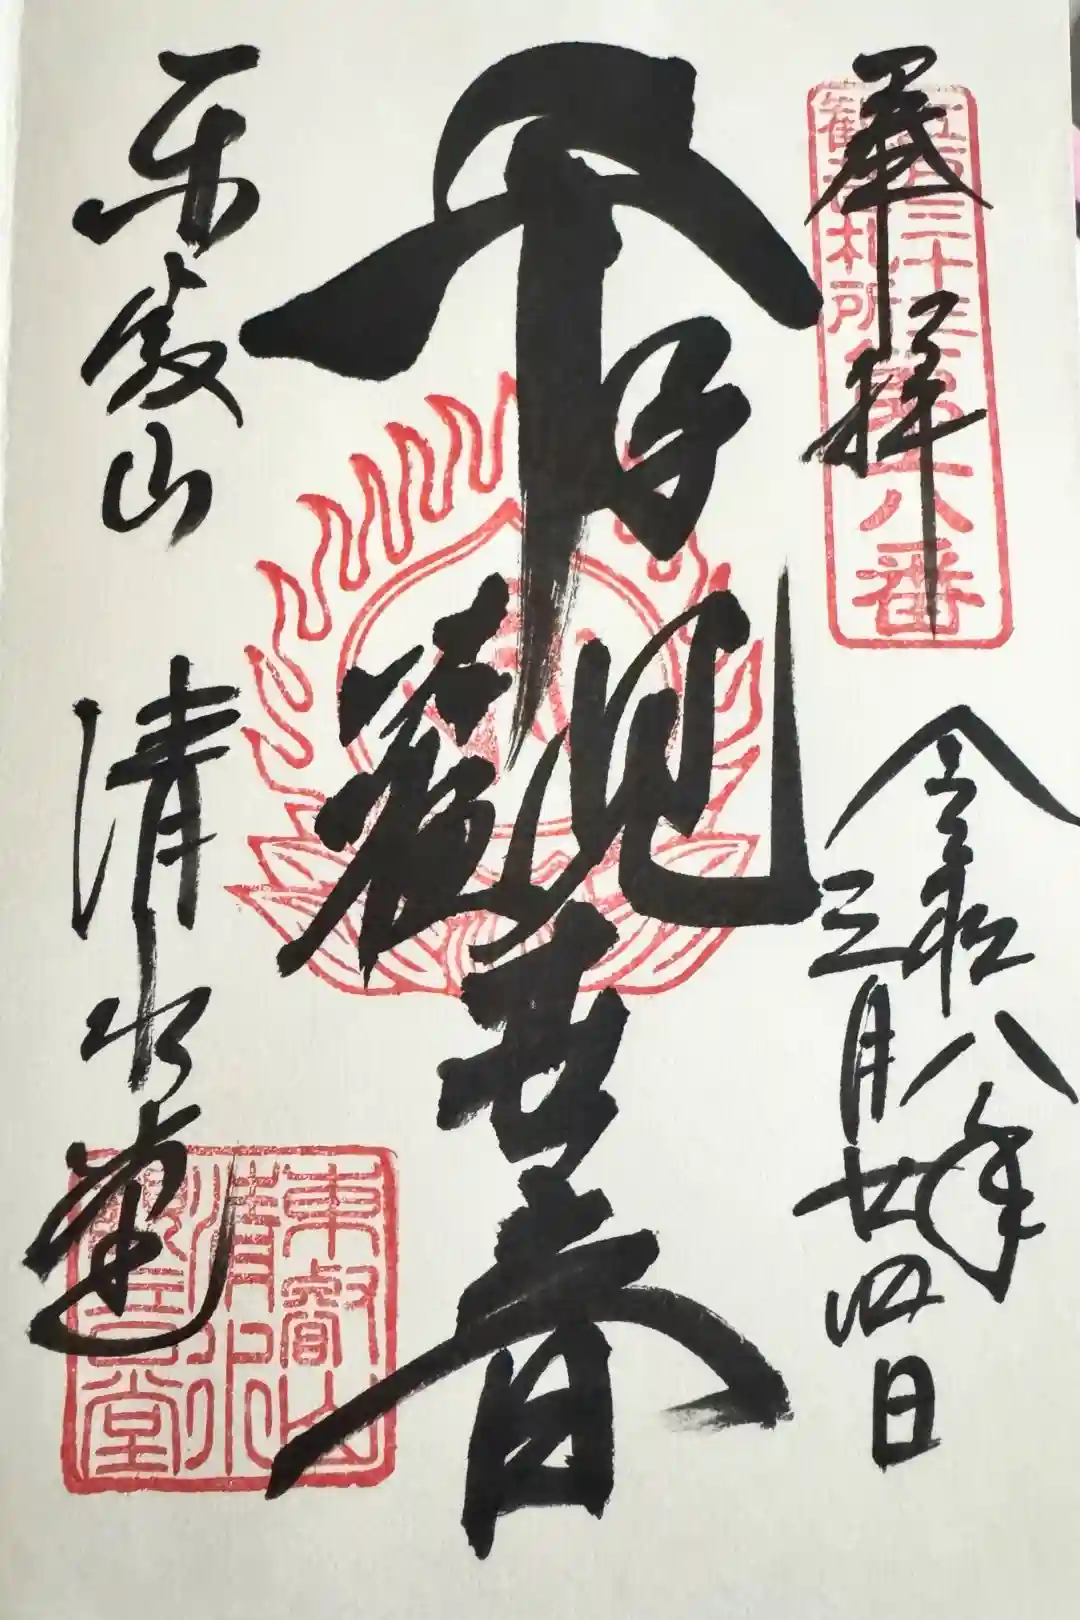 奉拝
江戸三十三
觀音札所
第六番
令和八年
三月廿四日
千手觀世音
東叡山 清水堂
東叡山
清水
觀音堂